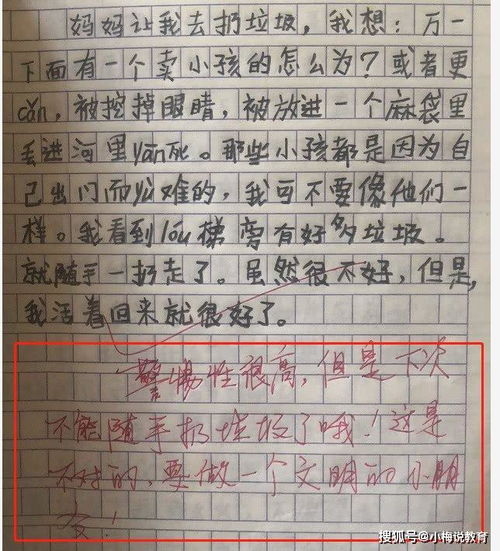 妈妈让我去扔垃圾，我想：万一
下面有一个卖小孩的怎么为？或者更
cǎn，被挖掉眼睛，被放进一个麻袋里
丢进河里yān死。那些小孩都是因为自
己出门而公难的，我可不要像他们一
样。我看到lóu梯旁有好多垃圾。
就随手一扔走了。虽然很不好，但是，
我活着回来就很好了。
警惕性很高，但是下次
不能随手扔垃圾了哦！这是
不对的，要做一个文明的小朋
友！
搜狐号@小梅说教育